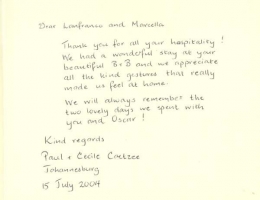 Dear Lanfranco and Marcella
Thank you for all your hospitality!
We had a wonderful stay at your
beautiful B+B and we appreciate
all the kind gestures that really
made us feel at home.
We will always remember the
two lovely days we spent with
you and Oscar!
Kind regards
Paul + Cecile Coetzee
Johannesburg
15 July 2004